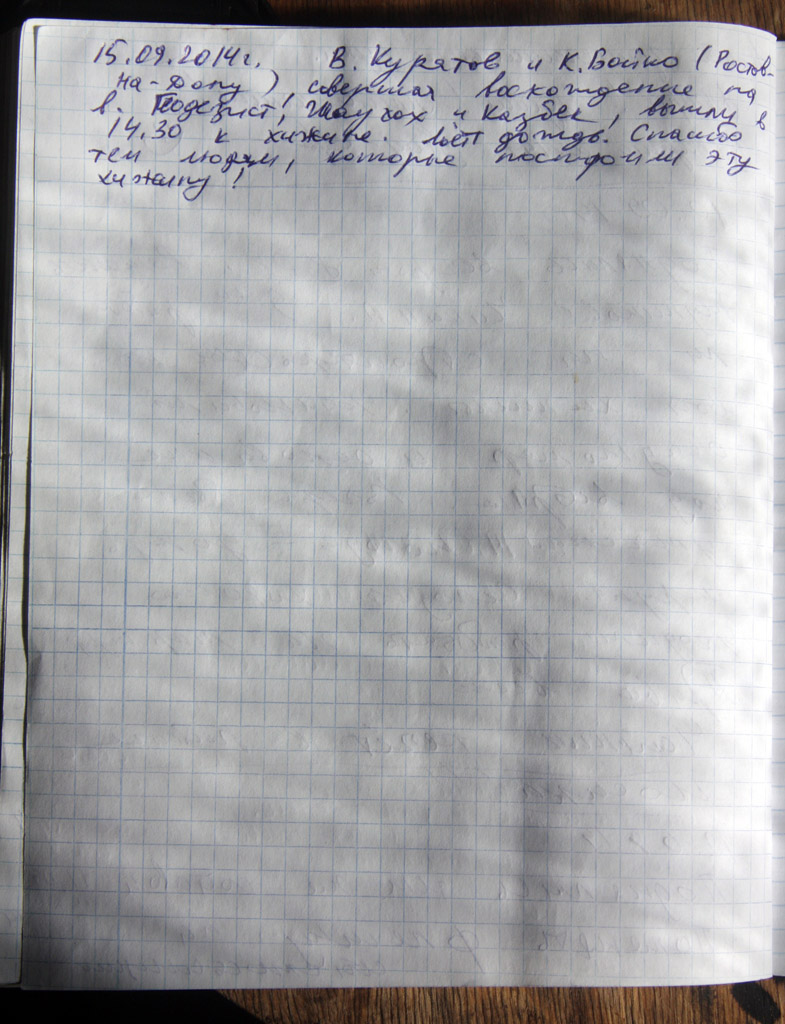 15.09.2014г. В. Куратов и К. Бойко (Ростов-
на-Дону), совершая восхождение на
в. Казбек, вышли в
14.30 к хижине. Льёт дождь. Спасибо
тем людям, которые построили эту
хижину!